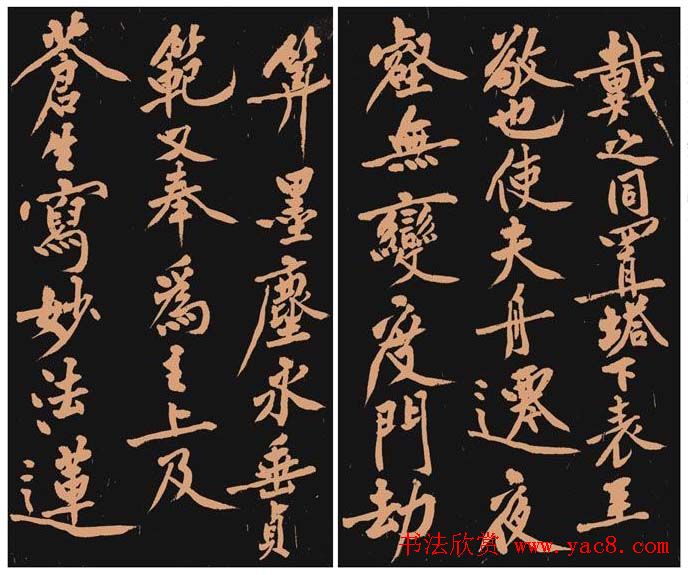 戴之同置塔下表至
敬也使夫舟遷夜
壑無變度門劫
筭墨塵永垂貞
範又奉為主上及
蒼生寫妙法蓮
书法欣赏 www.yac8.com